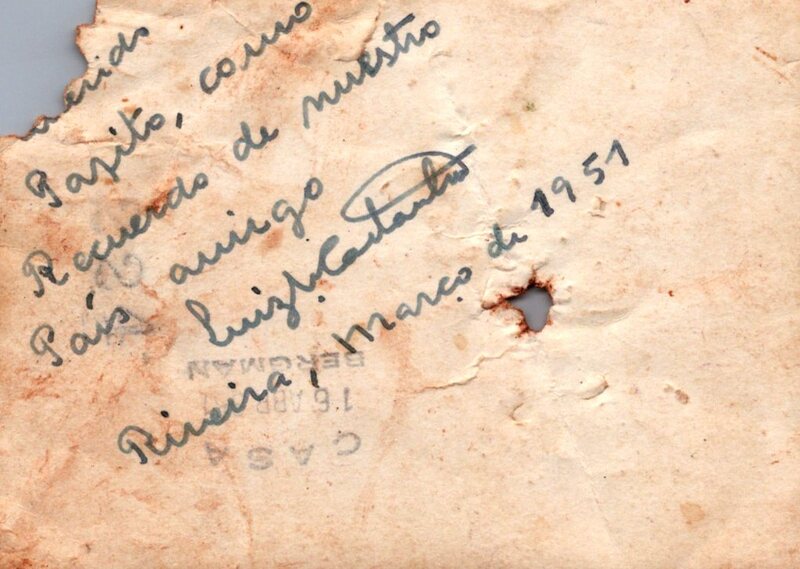 Papito, como
Recuerdo de nuestro
País amigo
Luiz
Riveira, Março de 1951
CASA
16 ABR
BERGMAN